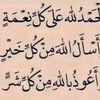 اَلْحَمْدُ لِلّٰهِ عَلٰى كُلِّ نِعْمَةٍ
اَسْأَلُ اللهَ مِنْ كُلِّ خَيْرٍ
اَعُوذُ بِاللهِ مِنْ كُلِّ شَرٍّ